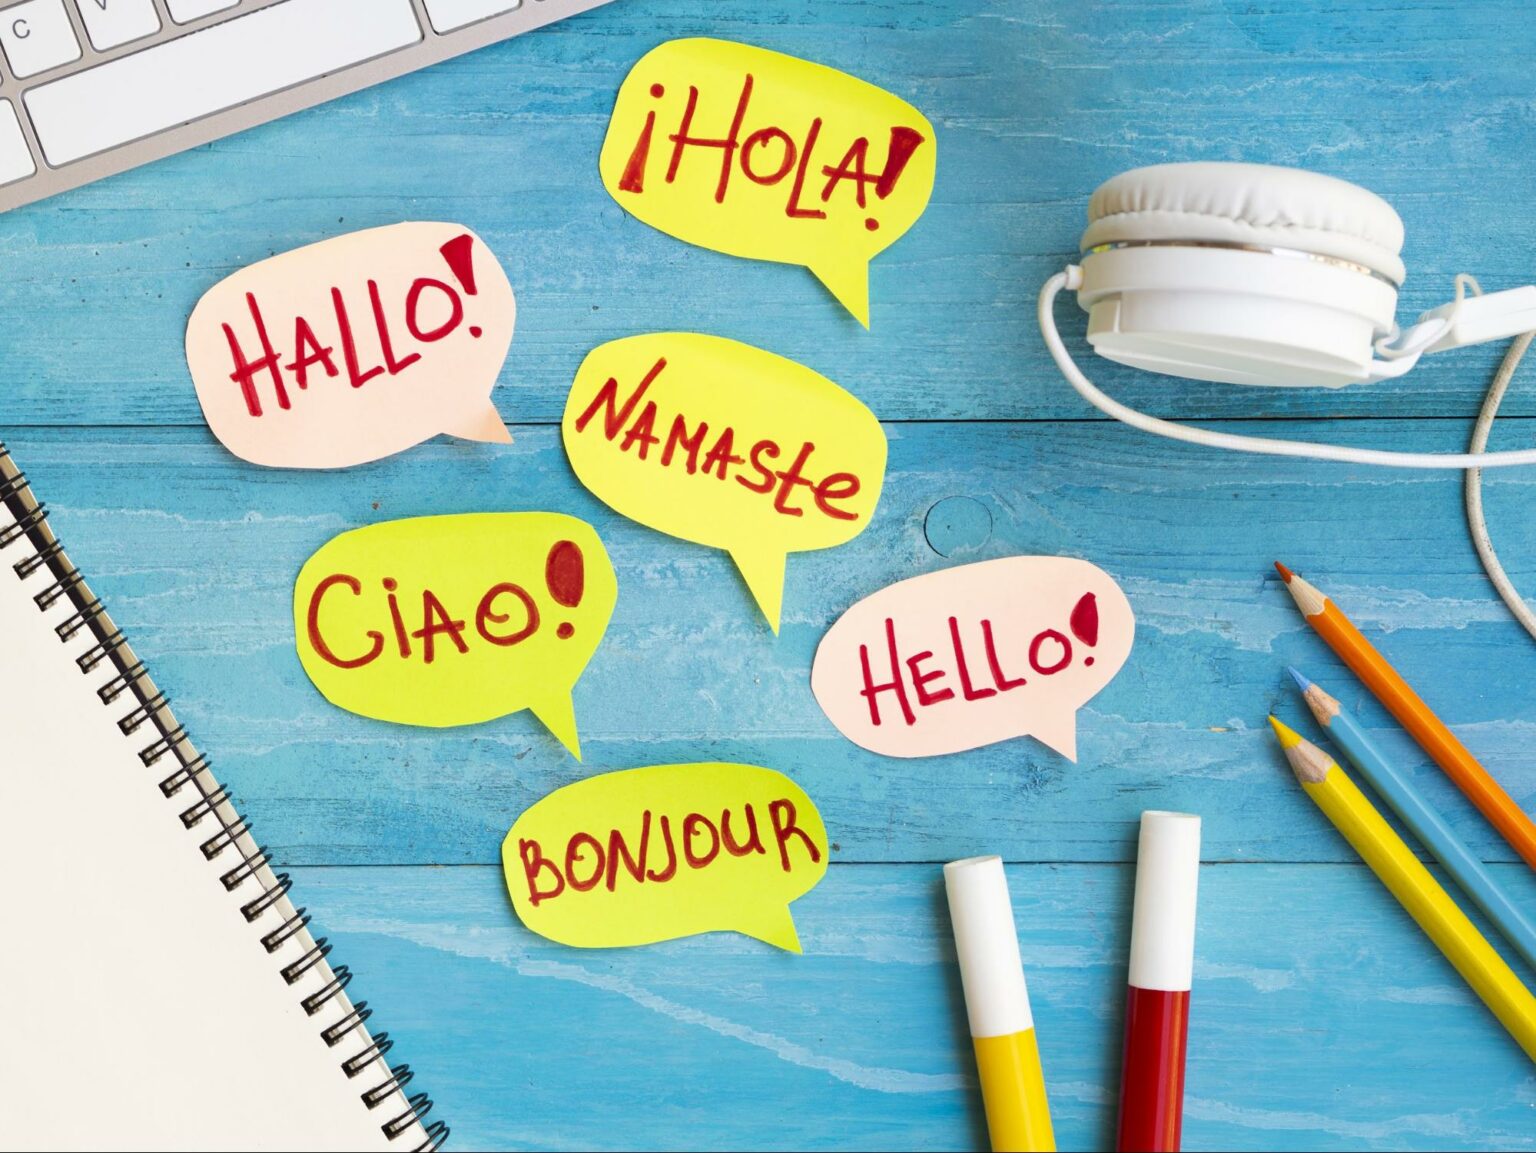 C
V
¡HOLA!
HALLO!
NAMASte
CiAO!
HELLO!
BONJOUR